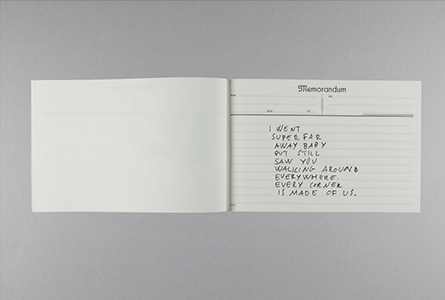 Memorandum
I WENT
SUPER FAR
AWAY BABY
BUT STILL
SAW YOU
WALKING AROUND
EVERYWHERE.
EVERY CORNER
IS MADE OF US.